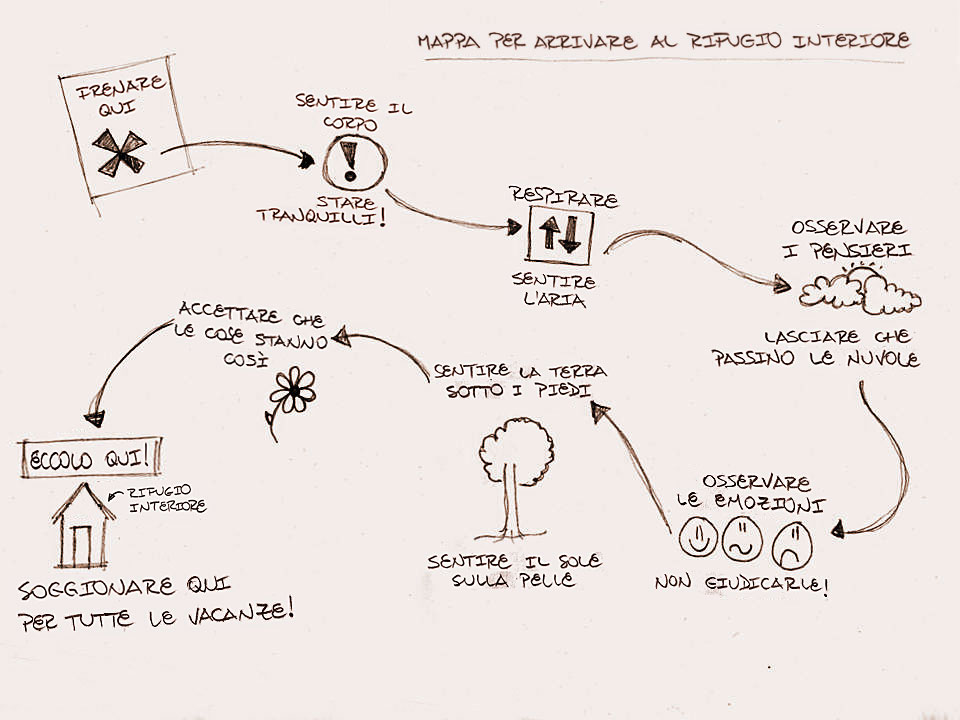 MAPPA PER ARRIVARE AL RIFUGIO INTERIORE
FRENARE
QUI
SENTIRE IL
CORPO
STARE
TRANQUILLI!
RESPIRARE
SENTIRE
L'ARIA
OSSERVARE
I PENSIERI
LASCIARE CHE
PASSINO LE NUVOLE
OSSERVARE
LE EMOZIONI
NON GIUDICARLE!
SENTIRE LA TERRA
SOTTO I PIEDI
SENTIRE IL SOLE
SULLA PELLE
ACCETTARE CHE
LE COSE STANNO
COSÌ
ECCOLO QUI!
RIFUGIO
INTERIORE
SOGGIONARE QUI
PER TUTTE LE VACANZE!